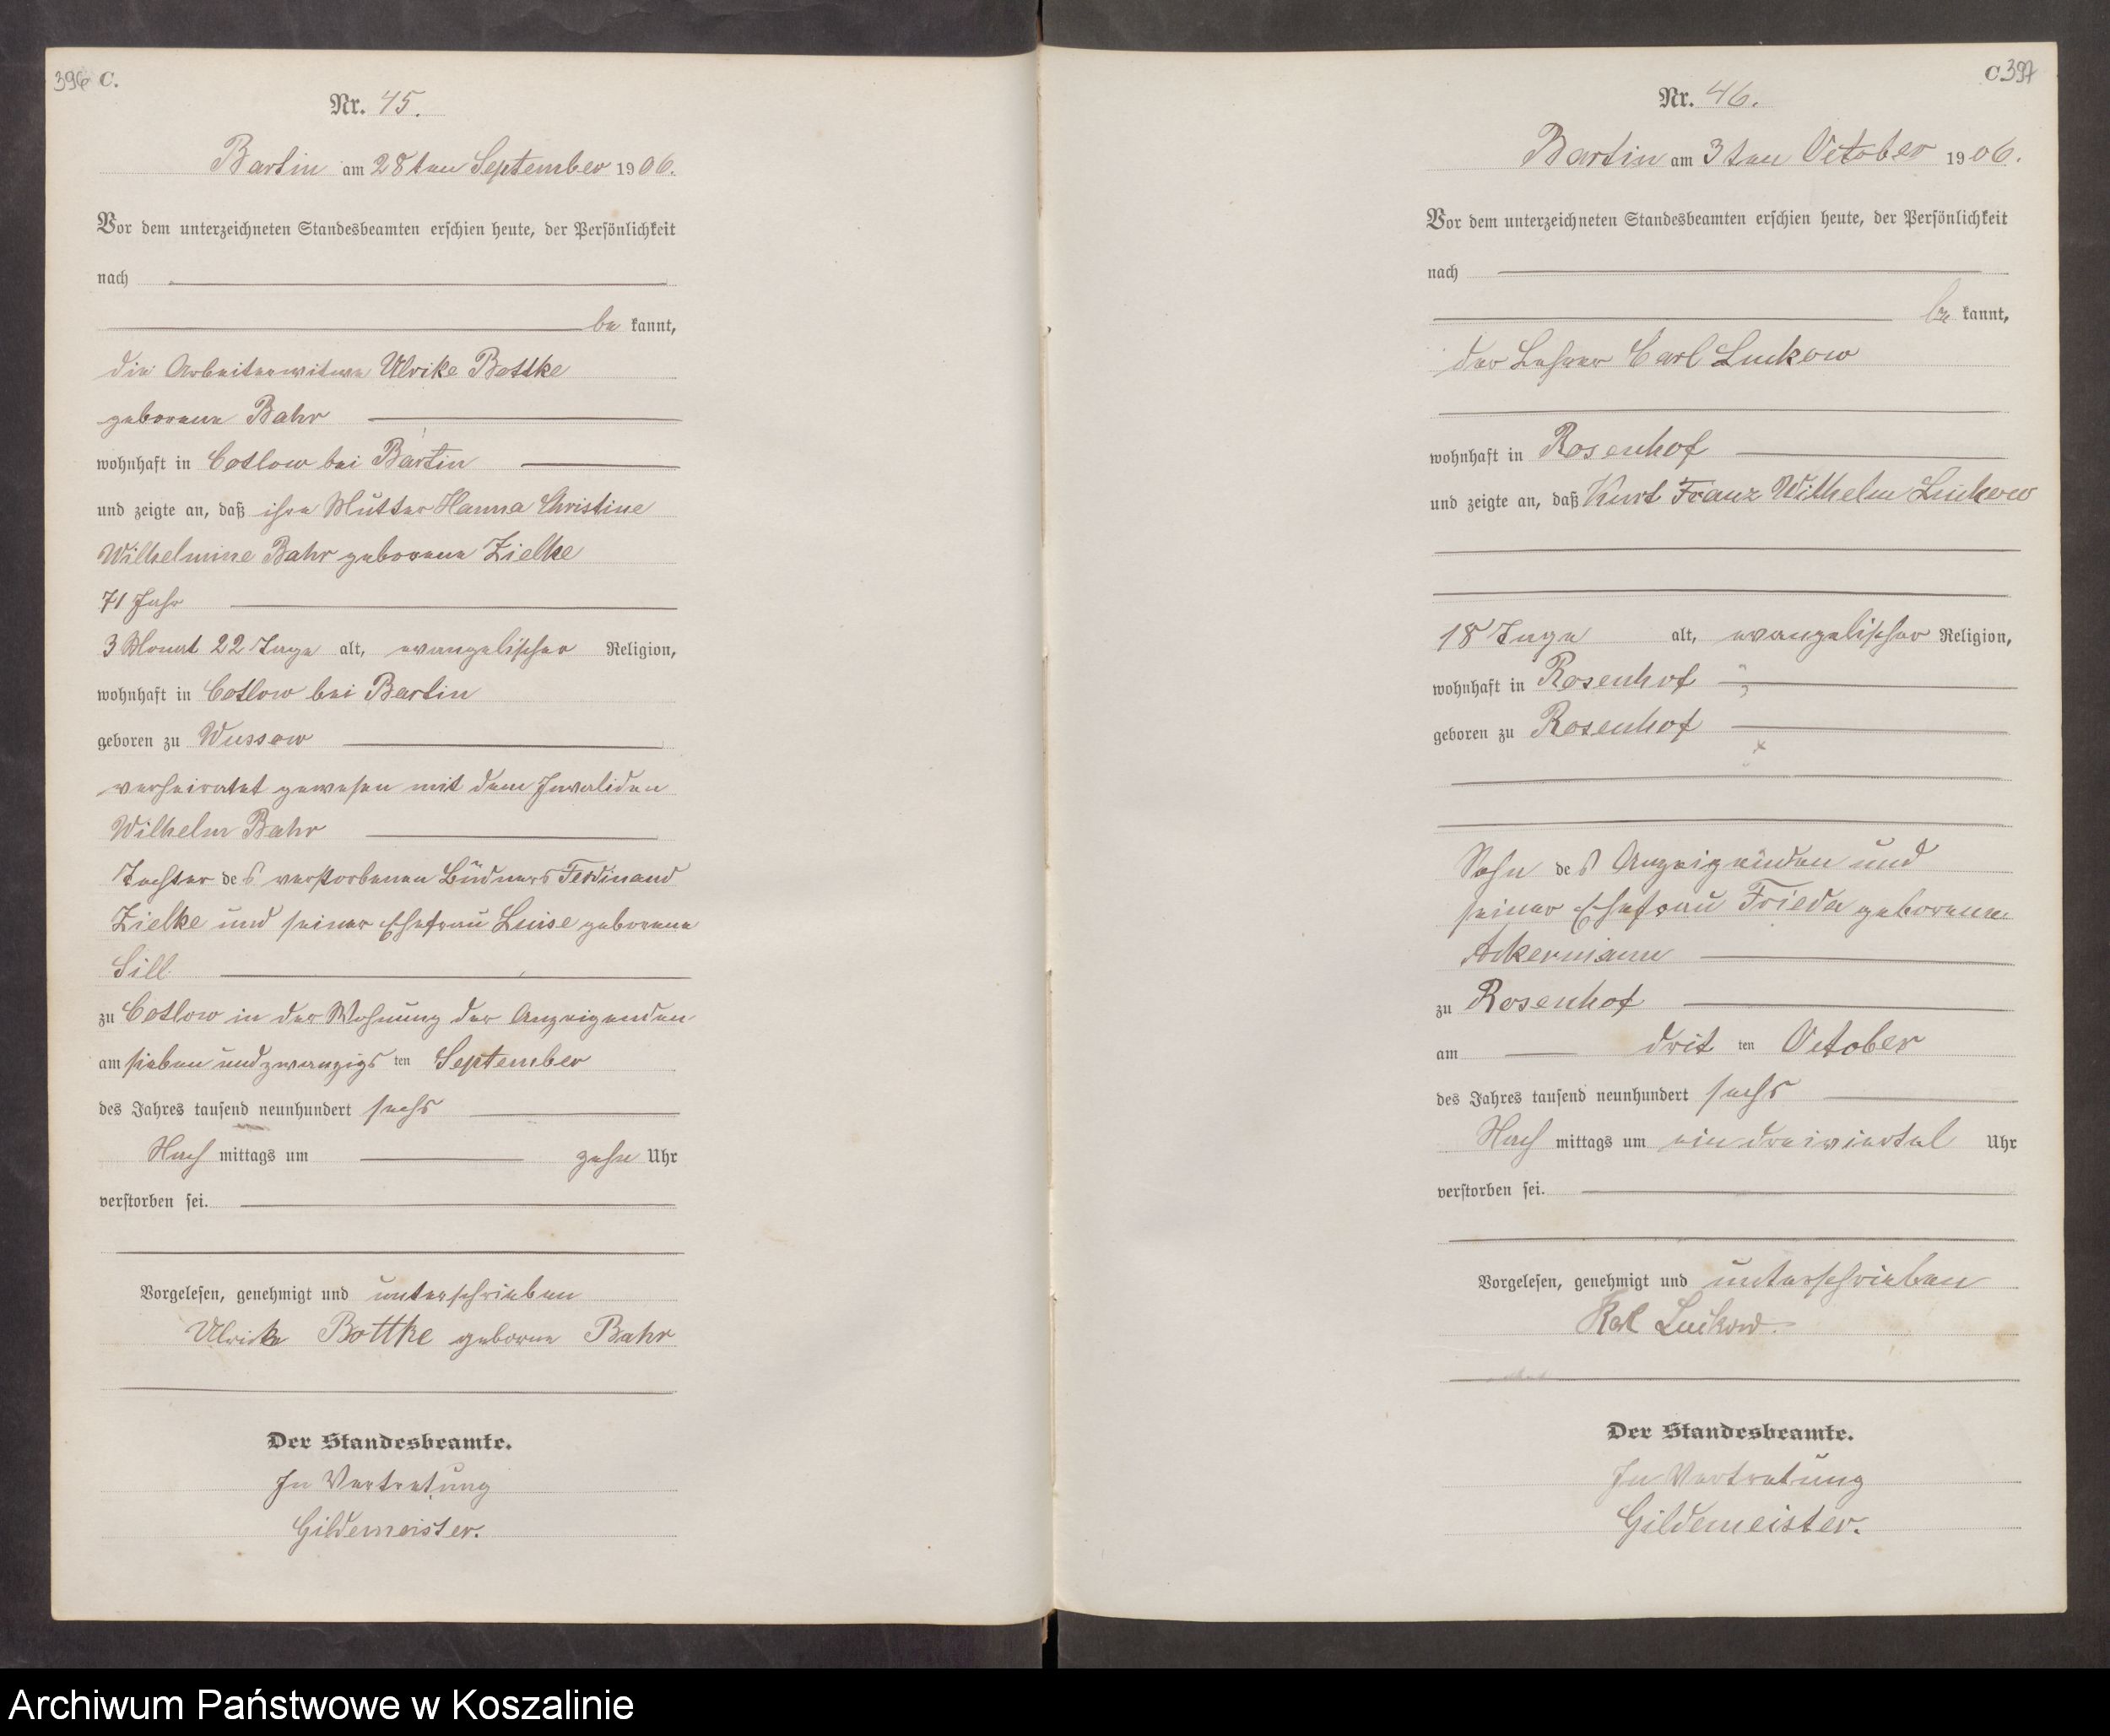 396 C.
Nr. 45.
Bartin am 28ten September 1906.
Vor dem unterzeichneten Standesbeamten erschien heute, der Persönlichkeit
nach
be kannt,
die Arbeiterwitwe Ulrike Bottke
geborene Bahr
wohnhaft in Cotlow bei Bartin
und zeigte an, daß ihre Mutter Hanna Christine
Wilhelmine Bahr geborene Zielke
71 Jahr
3 Monat 22 Tage alt, evangelischer Religion,
wohnhaft in Cotlow bei Bartin
geboren zu Wussow
verheiratet gewesen mit dem Invaliden
Wilhelm Bahr
Tochter des verstorbenen Büdners Ferdinand
Zielke und seiner Ehefrau Luise geborene
Sill
zu Cotlow in der Wohnung der Anzeigenden
am sieben und zwanzigs ten September
des Jahres tausend neunhundert sechs
Nach mittags um zehn Uhr
verstorben sei.
Vorgelesen, genehmigt und unterschrieben
Ulricke Bottke geborne Bahr
Der Standesbeamte.
In Vertretung
Gildemeister.
C.397
Nr. 46.
Bartin am 3ten October 1906.
Vor dem unterzeichneten Standesbeamten erschien heute, der Persönlichkeit
nach
be kannt,
der Lehrer Carl Luckow
wohnhaft in Rosenhof
und zeigte an, daß Kurt Franz Wilhelm Luckow
18 Tage alt, evangelischer Religion,
wohnhaft in Rosenhof
geboren zu Rosenhof
Sohn des Anzeigenden und
seiner Ehefrau Frieda geborene
Ackermann
zu Rosenhof
am drit ten October
des Jahres tausend neunhundert sechs
Nach mittags um ein dreiviertel Uhr
verstorben sei.
Vorgelesen, genehmigt und unterschrieben
Karl Luckow.
Der Standesbeamte.
In Vertretung
Gildemeister.
Archiwum Państwowe w Koszalinie